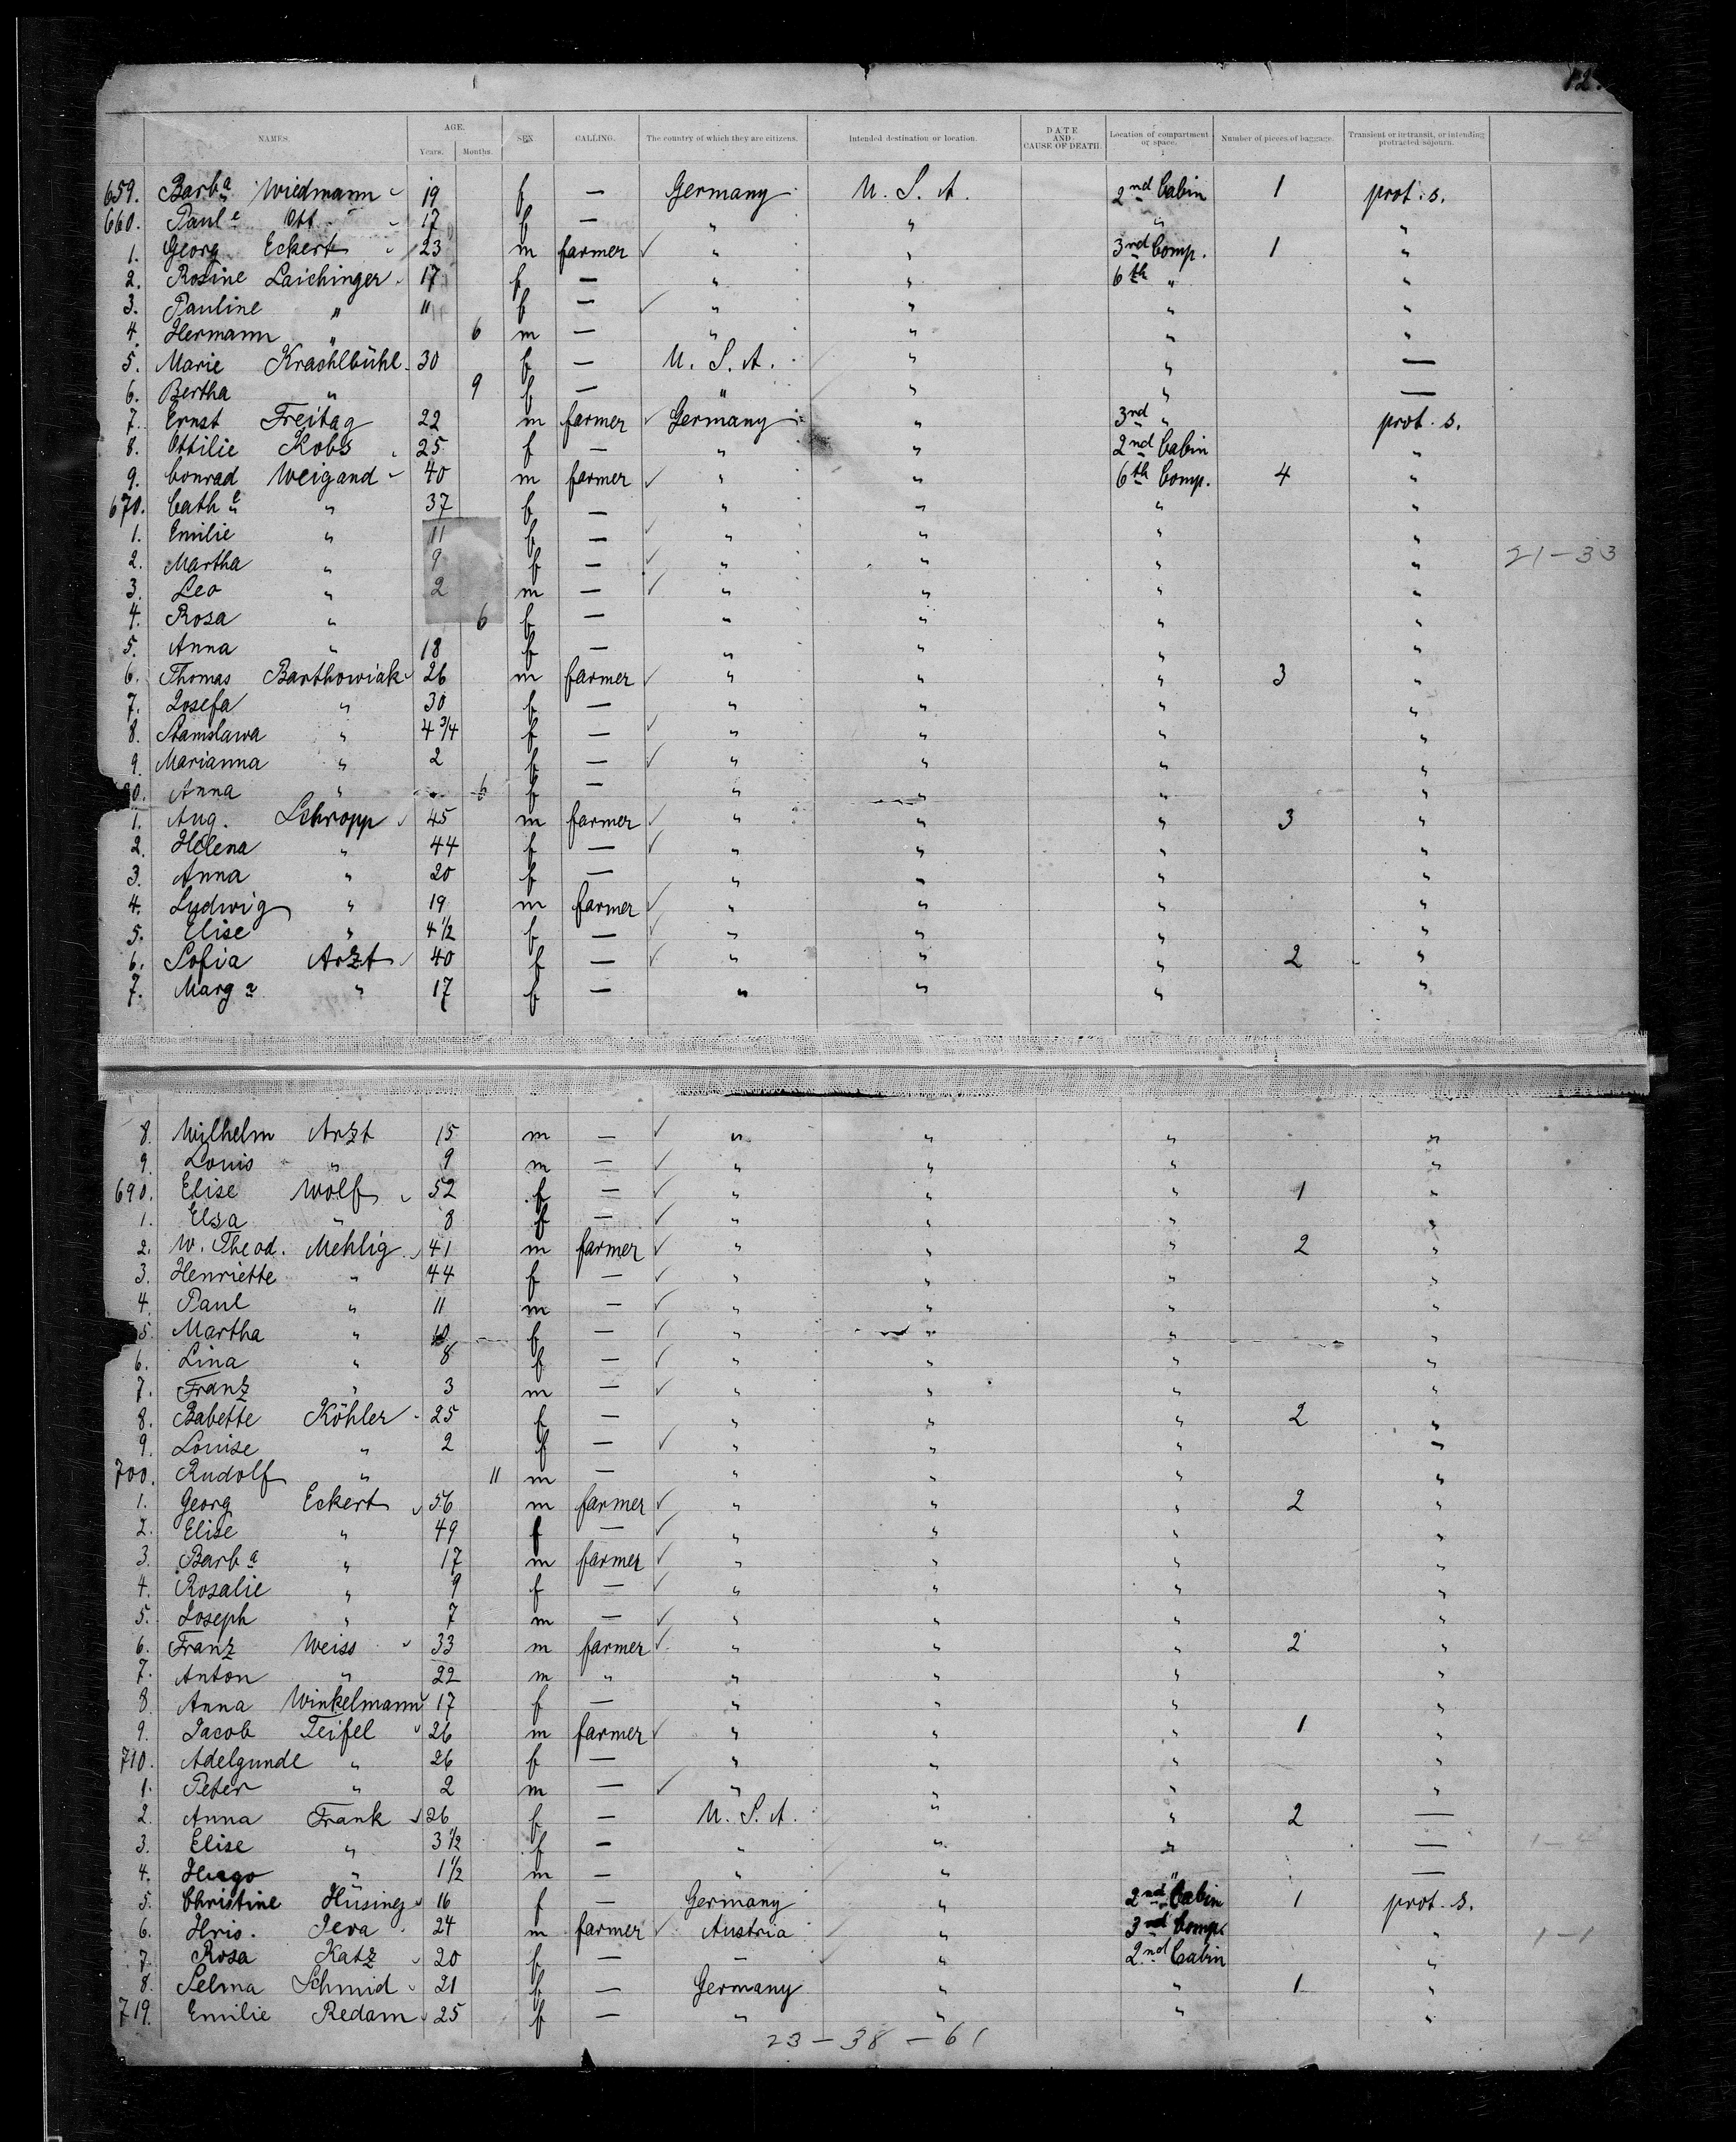 12.
NAMES. AGE. SEX. CALLING. The country of which they are citizens. Intended destination or location. DATE AND CAUSE OF DEATH. Location of compartment or space. Number of pieces of baggage. Transient or in transit, or intending protracted sojourn.
Years. Months.
659. Barbª Wiedmann 19 f — Germany U. S. A. 2nd Cabin 1 prot. s.
660. Paulᵉ Ott 17 f — " " " "
1. Georg Eckert 23 m farmer ✓ " " 3rd Comp. 1 "
2. Rosine Laichinger 17 f — " " 6th " "
3. Pauline " 11 f — ✓ " " " "
4. Hermann " 6 m — " " " "
5. Marie Krachlbühl 30 f — U. S. A. " " —
6. Bertha " 9 f — " " " —
7. Ernst Freitag 22 m farmer ✓ Germany " 3rd " prot. s.
8. Ottilie Kobs 25 f — " " 2nd Cabin "
9. Conrad Weigand 40 m farmer ✓ " " 6th Comp. 4 "
670. Cathᵉ " 37 f — " " " "
1. Emilie " 11 f — ✓ " " " "
2. Martha " 9 f — ✓ " " " " 21 — 33
3. Leo " 2 m — ✓ " " " "
4. Rosa " 6 f — " " " "
5. Anna " 18 f — " " " "
6. Thomas Barthowiak 26 m farmer ✓ " " " 3 "
7. Josefa " 30 f — " " " "
8. Stanislawa " 4 3/4 f — ✓ " " " "
9. Marianna " 2 f — ✓ " " " "
80. Anna " 6 f — " " " "
1. Aug. Schropp 45 m farmer ✓ " " " 3 "
2. Helena " 44 f — ✓ " " " "
3. Anna " 20 f — " " " "
4. Ludwig " 19 m farmer ✓ " " " "
5. Elise " 4 1/2 f — ✓ " " " "
6. Sofia Arzt 40 f — ✓ " " " 2 "
7. Margª " 17 f — " " " "
8. Wilhelm Arzt 15 m — ✓ " " " "
9. Louis " 9 m — ✓ " " " "
690. Elise Wolf 52 f — ✓ " " " 1 "
1. Elsa " 8 f — ✓ " " " "
2. W. Theod. Mehlig 41 m farmer ✓ " " " 2 "
3. Henriette " 44 f — ✓ " " " "
4. Paul " 11 m — ✓ " " " "
5. Martha " 10 f — ✓ " " " "
6. Lina " 8 f — ✓ " " " "
7. Franz " 3 m — ✓ " " " "
8. Babette Köhler 25 f — " " " 2 "
9. Louise " 2 f — ✓ " " " "
700. Rudolf " 11 m — " " " "
1. Georg Eckert 56 m farmer ✓ " " " 2 "
2. Elise " 49 f — ✓ " " " "
3. Barbª " 17 m farmer ✓ " " " "
4. Rosalie " 9 f — ✓ " " " "
5. Joseph " 7 m — ✓ " " " "
6. Franz Weiss 33 m farmer ✓ " " " 2 "
7. Anton " 22 m " " " " "
8 Anna Winkelmann 17 f — " " " "
9. Jacob Teifel 26 m farmer ✓ " " " 1 "
710. Adelgunde " 26 f — " " " "
1. Peter " 2 m — ✓ " " " "
2. Anna Frank 26 f — U. S. A. " " 2 —
3. Elise " 3 1/2 f — " " " —
4. Hugo " 1 1/2 m — " " " —
5. Christine Hüsing 16 f — Germany " 2nd Cabin 1 prot. s.
6. Hris. Jeva 24 m farmer ✓ Austria " 3rd Comp. " 1 — 1
7. Rosa Katz 20 f — — " 2nd Cabin "
8. Selma Schmid 21 f — Germany " " 1 "
719. Emilie Redam 25 f — " " " "
23 — 38 — 61